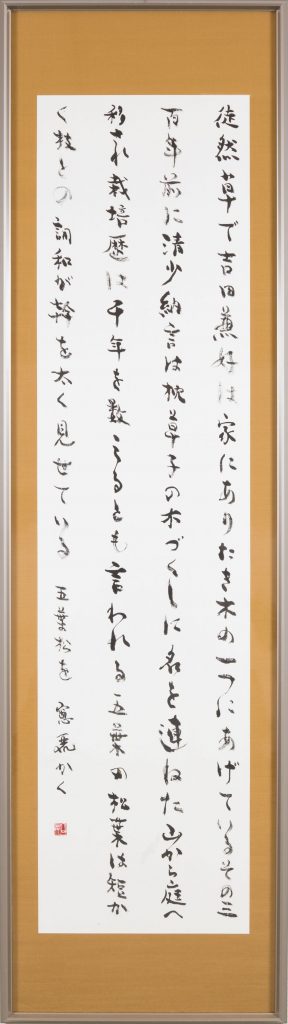 徒然草で吉田兼好は家にありたき木の一つにあげているその三
百年前に清少納言は枕草子の木づくしに名を連ねた山から庭へ
移され栽培歴は千年を数えるとも言われる五葉の松葉は短か
く枝との調和が幹を太く見せている 五葉松を かく